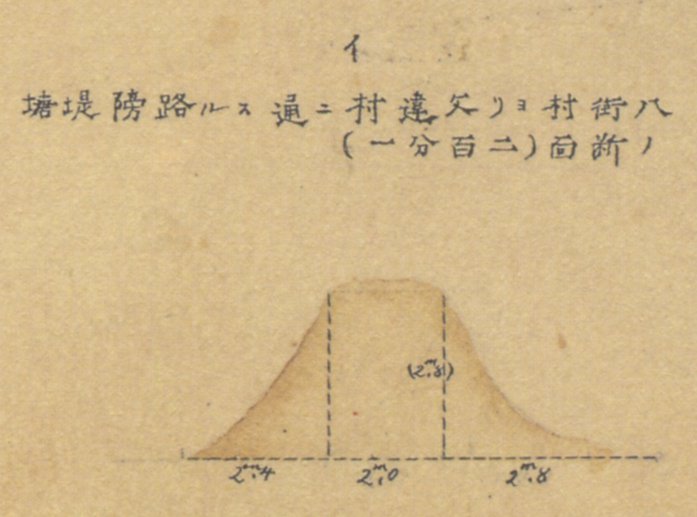 イ
八街村ヨリ文違村ニ通スル路傍堤塘
ノ断面(二百分一)
(2.ᵐ8)
2.ᵐ4 2.ᵐ0 2.ᵐ8